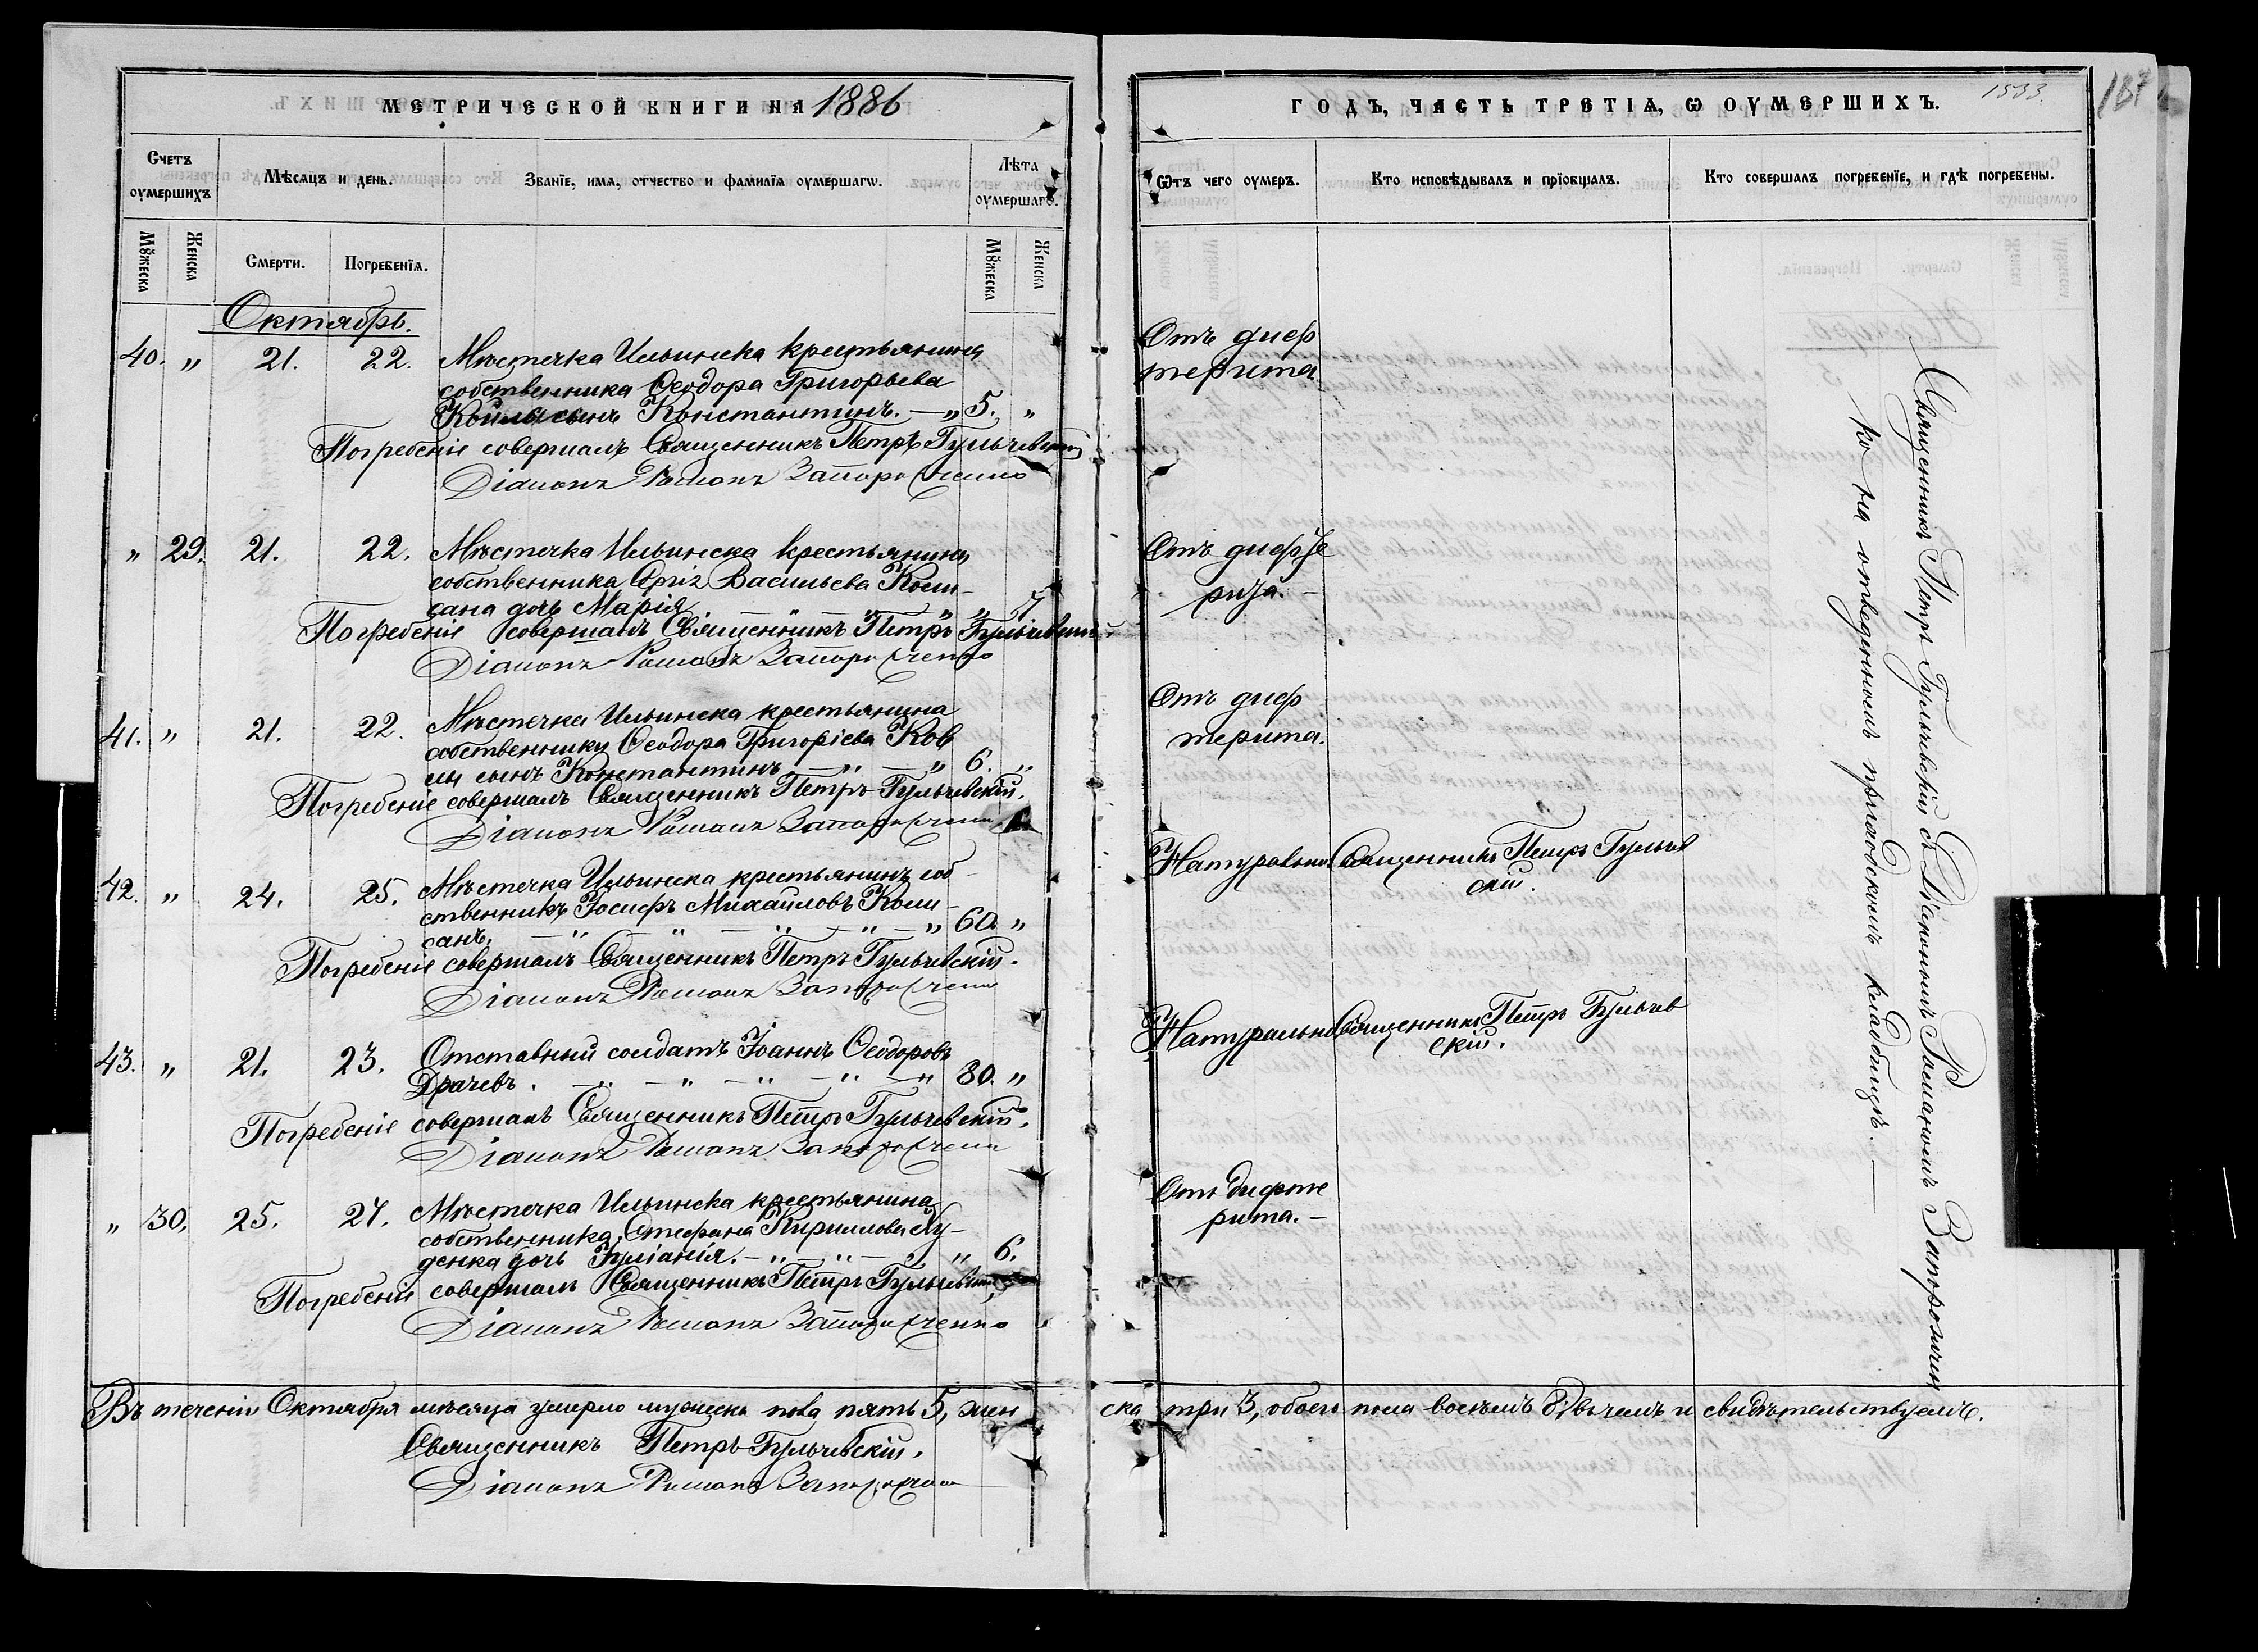 МЕТРИЧЕСКОЙ КНИГИ НА 1886
ГОДЪ, ЧАСТЬ ТРЕТІѦ, Ѡ ОУМЕРШИХЪ.
187
Счетъ оумершихъ
Мѣсѧцъ и день.
Званїе, имѧ, отчество и фамилїѧ оумершагѡ.
Лѣта оумершагѡ.
Ѿтъ чего оумеръ.
Кто исповѣдывалъ и прїобщалъ.
Кто совершалъ погребенїе, и гдѣ погребены.
Мꙋжеска
Женска
Смерти.
Погребенїѧ.
Мꙋжеска
Женска
Октябрь.
40. " 21. 22. Мѣстечка Ильинска крестьянина Отъ диф
собственника Ѳеодора Григорьева терита
сынъ Константинъ. — " 5. "
Погребеніе совершалъ Священникъ Петръ Гульчевскій
Діаконъ Романъ Запорожченко
" 29. 21. 22. Мѣстечка Ильинска крестьянина Отъ дифте
собственника Васильева Кои- рита. —
сана дочь Марія " 7
Погребеніе совершалъ Священникъ Петръ Гульчевскій
Діаконъ Романъ Запорожченко
41. " 21. 22. Мѣстечка Ильинска крестьянина Отъ диф
собственника Ѳеодора Григоріева Ков терита.
сынъ Константинъ — " — " 6. "
Погребеніе совершалъ Священникъ Петръ Гульчевскій.
Діаконъ Романъ Запорожченко
42. " 24. 25. Мѣстечка Ильинска крестьянинъ соб- Натурально Священникъ Петръ Гульчев
ственникъ Іосифъ Михайловъ Кои- скій.
санъ. — " — " — " — " — " 60. "
Погребеніе совершалъ Священникъ Петръ Гульчевскій.
Діаконъ Романъ Запорожченко
43. " 21. 23. Отставный солдатъ Іоаннъ Ѳеодоровъ Натурально Священникъ Петръ Гульчев
Драчевъ. — " — " — " — " — " 80. " скій.
Погребеніе совершалъ Священникъ Петръ Гульчевскій.
Діаконъ Романъ Запорожченко
" 30. 25. 27. Мѣстечка Ильинска крестьянина Отъ дифте
собственника Стефана Кириллова Ху- рита. —
денка дочь Іуліанія. — " — " — " " 6.
Погребеніе совершалъ Священникъ Петръ Гульчевскій
Діаконъ Романъ Запорожченко
Священникъ Петръ Гульчевскій съ Діакономъ Романомъ Запорожчен
ко на отведенномъ приходскомъ кладбищѣ. —
Въ теченіи Октября мѣсяца умерло мужеска пола пять 5, жен
ска три 3, обоего пола восемъ 8; въ чемъ и свидѣтельствуемъ.
Священникъ Петръ Гульчевскій.
Діаконъ Романъ Запорожченко